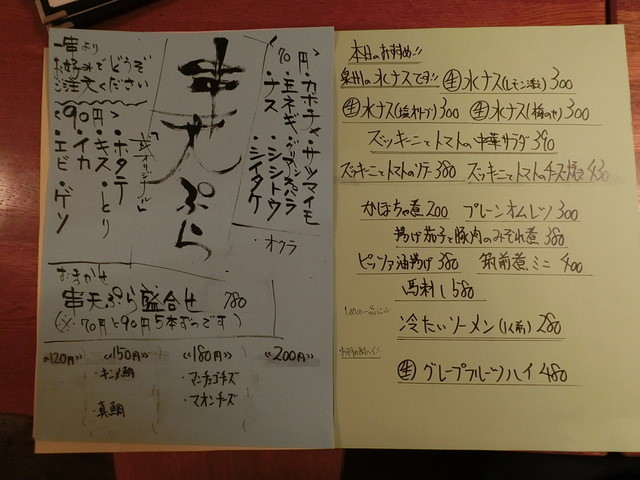 一串より
お好みでどうぞ
ご注文ください
串天ぷら
<70円>
・カボチャ・サツマイモ
・玉ネギ・グリーンアスパラ
・ナス・シシトウ
・シイタケ
・オクラ
<90円>
・ホタテ・とり
・キス
・イカ
・エビ・ゲソ
おまかせ
串天ぷら盛合せ 780
(※70円と90円5本ずつです)
<<120円>> <<150円>> <<180円>> <<200円>>
・キンメ鯛
・真鯛
・マンチョゴチーズ
・マオンチーズ
本日のおすすめ!!
泉州の水ナスです!! 生水ナス(レモン添え) 300
生水ナス(塩オリーブ) 300 生水ナス(梅のせ) 300
ズッキーニとトマトの中華サラダ 390
ズッキーニとトマトのソテー 380 ズッキーニとトマトのチーズ焼き 430
かぼちゃ煮 200 プレーンオムレツ 300
揚げ茄子と豚肉のみぞれ煮 380
ピッツァ油揚げ 380 筑前煮ミニ 400
馬刺し 580
冷たいソーメン(1人前) 280
生グレープフルーツハイ 480